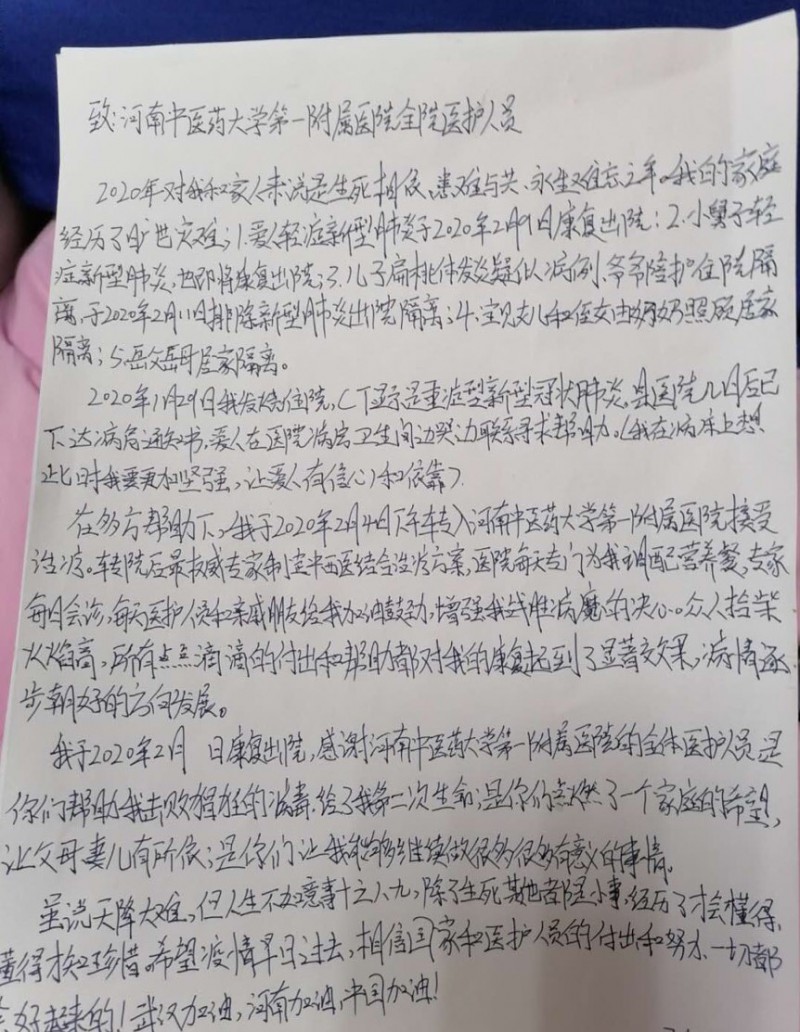 致:河南中医药大学第一附属医院全院医护人员
2020年对我和家人来说是生死相依、患难与共、永生难忘之年。我的家庭
经历了旷世灾难;1.爱人轻症新型肺炎于2020年2月9日康复出院;2.小舅子轻
症新型肺炎,也即将康复出院;3.儿子扁桃体发炎疑似病例,爷爷陪护住院隔
离,于2020年2月11日排除新型肺炎出院隔离;4.宝贝女儿和侄女由奶奶照顾居家
隔离;5.岳父岳母居家隔离。
2020年1月29日我发烧住院,CT显示是重症型新型冠状肺炎,县医院几日后已
下达病危通知书,爱人在医院病房卫生间边哭边联系寻求帮助。(我在病床上想
此时我要更加坚强,让爱人有信心和依靠)
在多方帮助下,我于2020年2月4日下午转入河南中医药大学第一附属医院接受
治疗。转院后最权威专家制定中西医结合治疗方案,医院每天专门为我调配营养餐,专家
每日会诊,每天医护人员和亲戚朋友给我加油鼓劲,增强我战胜病魔的决心。众人拾柴
火焰高,所有点点滴滴的付出和帮助都对我的康复起到了显著效果,病情逐
步朝好的方向发展。
我于2020年2月 日康复出院,感谢河南中医药大学第一附属医院的全体医护人员,是
你们帮助我击败猖狂的病毒,给了我第二次生命;是你们点燃了一个家庭的希望,
让父母妻儿有所依;是你们让我能够继续做很多很多有意义的事情。
虽说天降大难,但人生不如意事十之八九,除了生死其他都是小事,经历了才会懂得,
懂得才知珍惜。希望疫情早日过去,相信国家和医护人员的付出和努力,一切都
会好起来的!武汉加油,河南加油,中国加油!